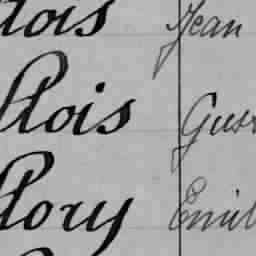 lois Jean
llois Gus
llory Emil